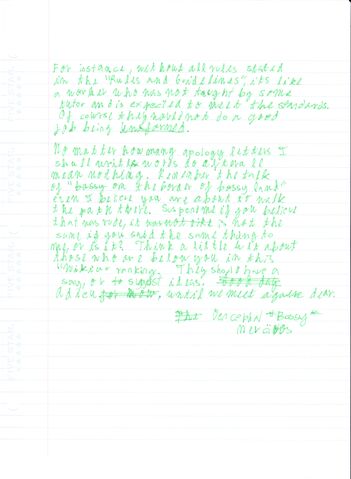 For instance, without all rules stated
in the "Rules and Guidelines", it's like
a worker who was not taught by some
tutor and is expected to meet the standards.
Of course they'd not do a good
job being uninformed.
No matter how many apology letters I
shall write words to a
mean nothing. Remember the talk
of "bossy on the border of bossy land"
even I believe you are about to walk
the path there. Suspend me if you believe
that was rude, it was not
same as you said the same thing to
me, or is it? Think a little bit about
those who are below you in this
ranking. They should have a
say, or to suggest ideas.
Adieu for now, until we meet again dear.
"Bossy"